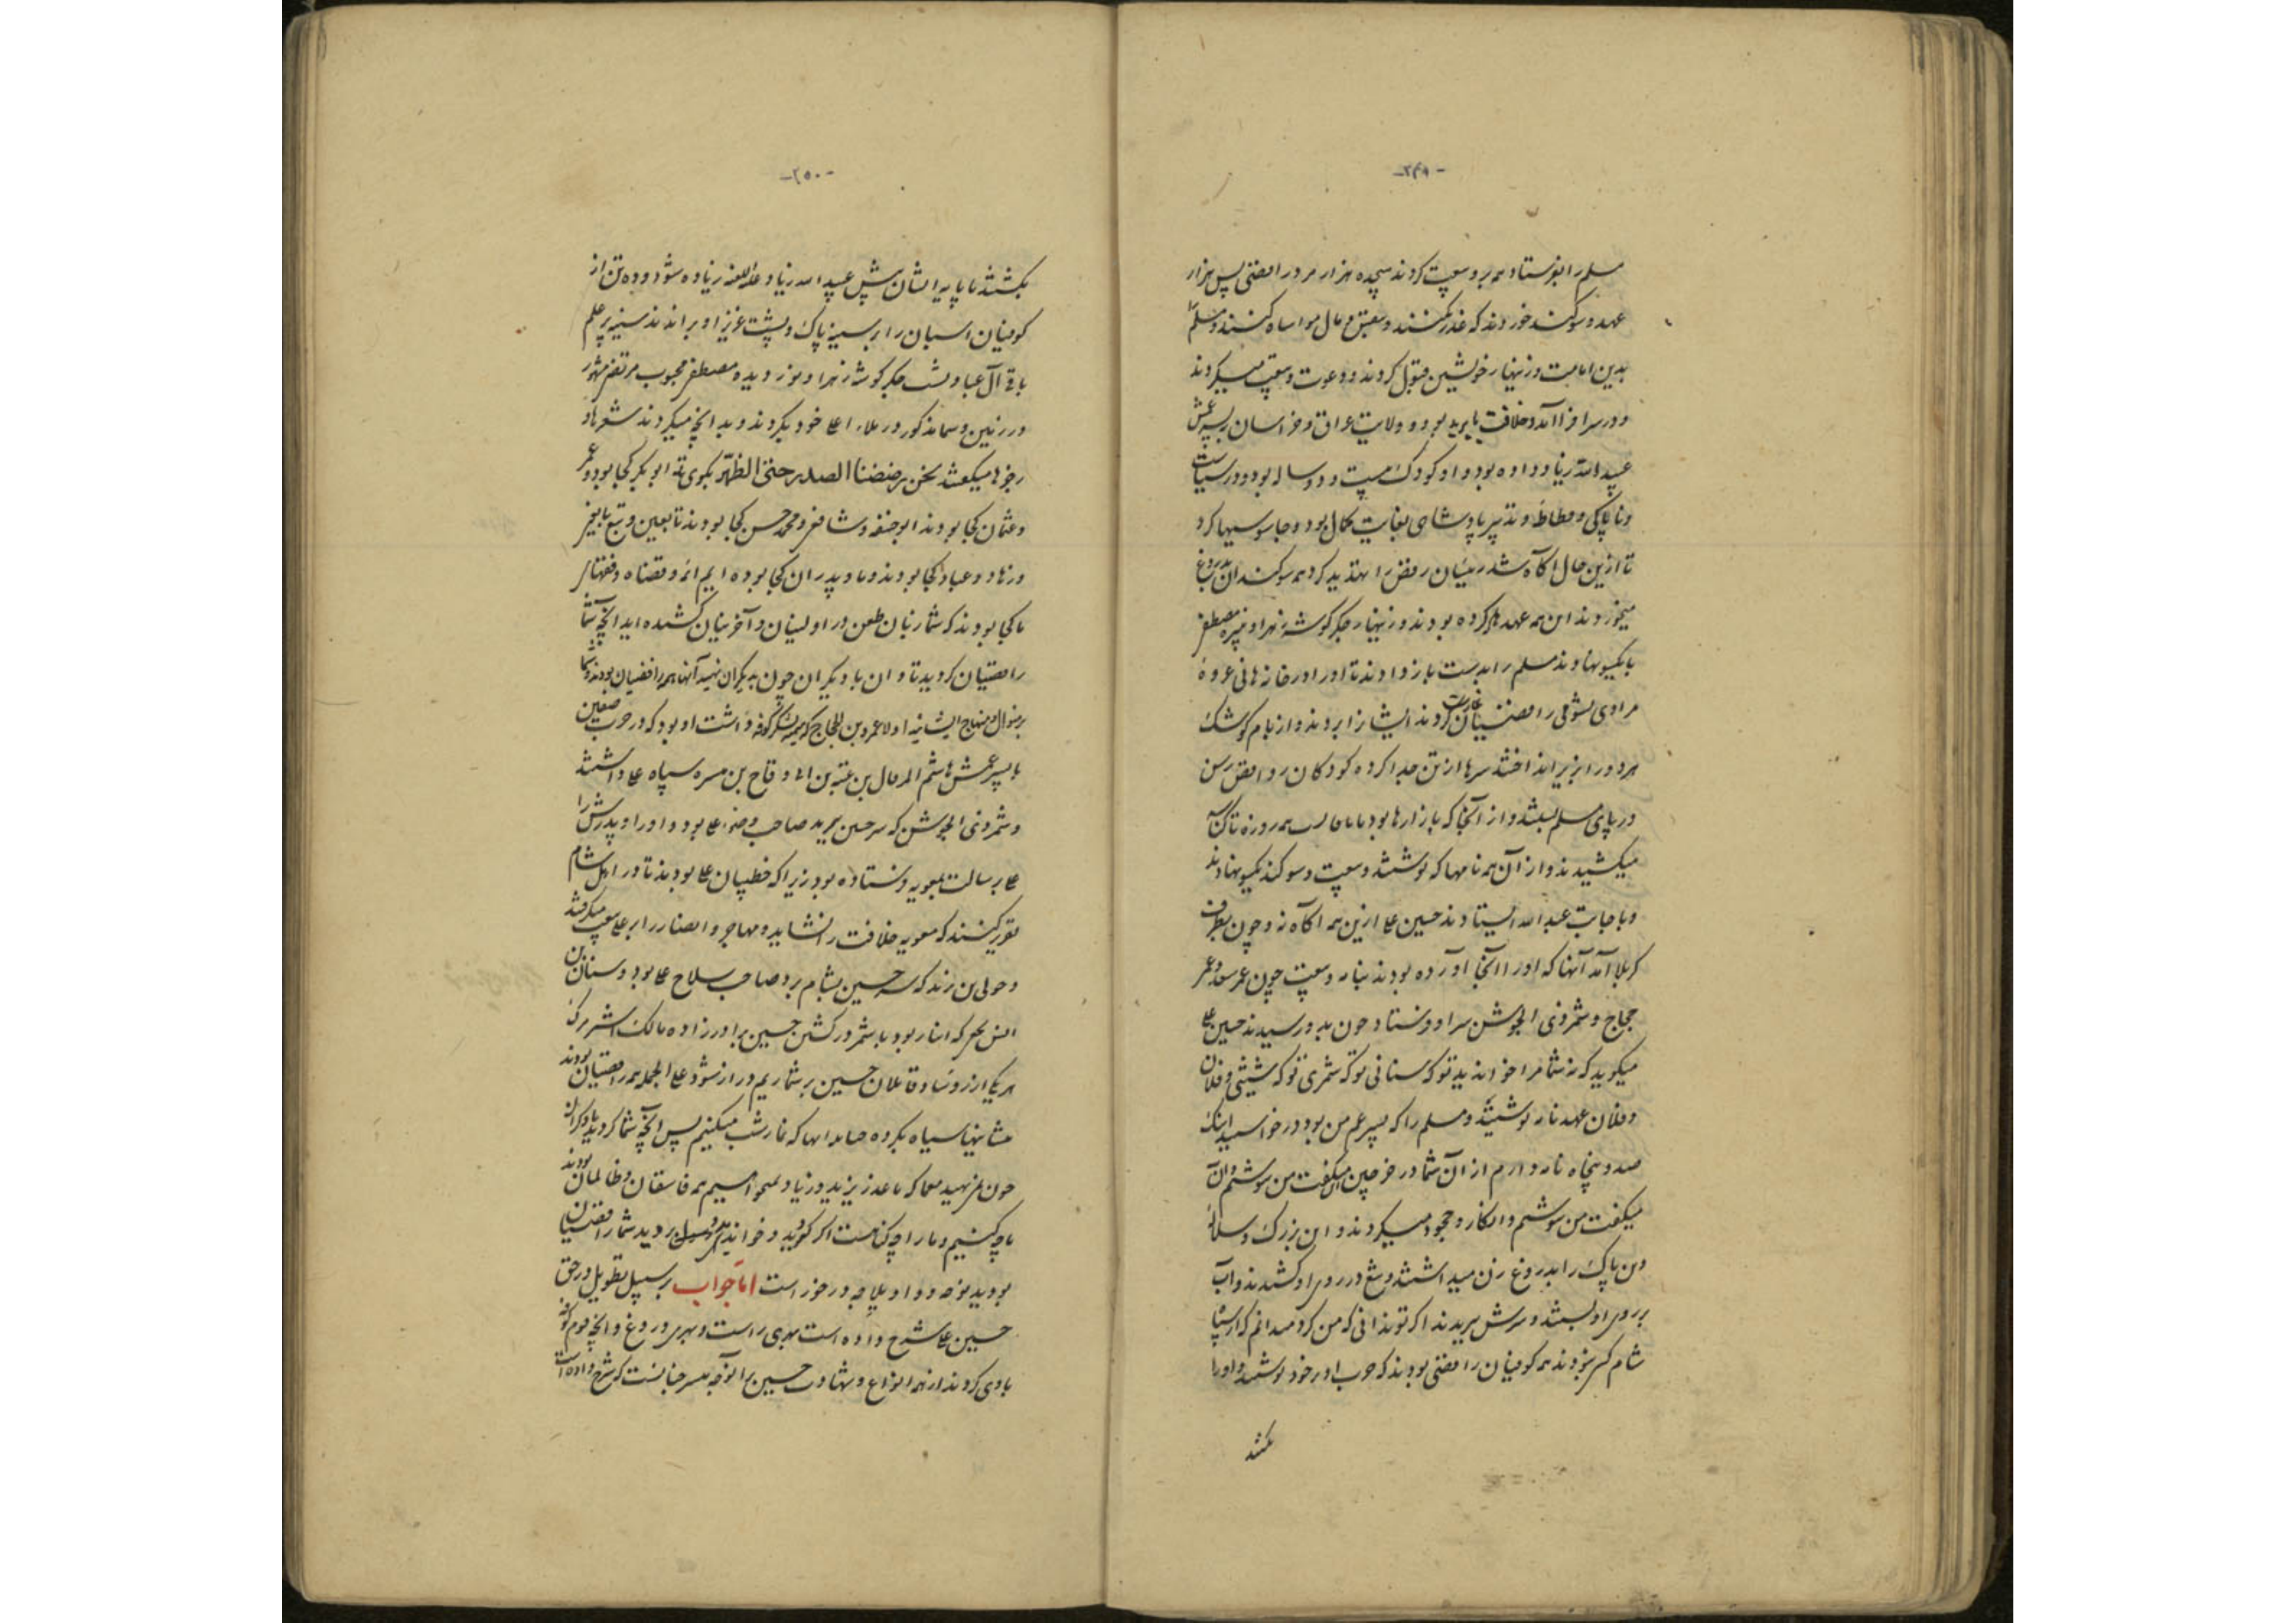 -۲۴۹-
مسلم را بفرستاد همه برو بیعت کردند هجده هزار مرد رافضی پس هزار
عهد و سوگند خوردند که غدر نکنند و بنفس و مال مواساه کنند و مسلم
بدین امانت در زینهار خویشین قبول کردند و دعوت و بیعت میکردند
و در سرا فرا آمد و خلافت با یزید بود و ولایت عراق و خراسان به پسر عمش
عبید الله زیاد داده بود و او کودک بیست و دو ساله بود و در سیاست
و ناپاکی و تدبیر پادشاهی بغایت کمال بود و جاسوسیها کرد
تا ازین حال آگاه شد رئیسان رفض را تهدید کرد همه سوگندان بدروغ
میخوردند این همه عهدها کرده بودند و زینهار جگر گوشه زهرا و نبیره مصطفی
با یکسو نهادند مسلم را بدست باز دادند تا او را در خانه هانی عروه
مرادی بشومی رافضیان غارت کردند ایشانرا بردند و از بام کوشک
هر دو را بزیر انداختند سرها از تن جدا کرده کودکان روافض رسن
در پای مسلم بستند و از آنجا که بازارها بود همه روزه تا کناسه
میکشیدند و از آن همه نامها که نوشتند و بیعت و سوگند بیکسو نهادند
و با جانب عبد الله ایستادند حسین علی ازین همه آگاه نه و چون بطرف
کربلا آمد آنها که او را آنجا آورده بودند بنامه و بیعت چون عمر سعد و عمر
حجاج و شمر ذی الجوشن سر او فرستاد چون بدو رسیدند حسین علی
میگوید که نه شما مرا خواندید تو که سنانی تو که شمری تو که شیثی و فلان
و فلان عهد نامه نوشتید و مسلم را که پسر عم من بود درخواسید اینک
صد و پنجاه نامه دارم از آن شما در خرجین این میگفت من ننوشتم و آن
میگفت من ننوشتم و انکار و جحود میکردند و این بزرگ و سلاله
و تن پاک را بدروغ زن میداشتند و تیغ در روی او کشیدند و آب
بر روی او بستند و سرش ببریدند اگر تو ندانی که من کرد میدانم که از سپاه
شام کس نبودند همه کوفیان رافضی بودند که حرب او بر خود نوشتند و او را
بکشتند
-۲۵۰-
بکشتند تا پایه ایشان پیش عبید الله زیاد علیه اللعنه زیاده شود و ده تن از
کوفیان اسبان را بر سینه پاک و پشت عزیز او براندند سینه پر علم
باقی آل عبا و پشت جگر گوشه زهرا و نور دیده مصطفی محبوب مرتضی مهوّر
در زمین و سما مذکور در ملاء اعلی خود بکردند و بدانچه میکردند شعرها و
رجزها میگفتند نحن رضضنا الصدر حتی الظهر بگوی تا ابو بکر کجا بود و عمر
و عثمان کجا بودند ابو حنیفه و شافعی و محمد حسن کجا بودند تابعین و تبع تابعین
و زهاد و عباد کجا بودند و ما و پدران کجا بوده ایم ائمه و قضاه و فقهای
ما کجا بودند که شما زبان طعن در اولینان و آخرینان کشیده اید آنچه شما
رافضیان کردید تاوان با دیگران چون بدیگران نهید آنها همه رافضیان بودند و شما
بر منوال و منهاج ایشانید اولا عمرو بن الحجاج که میمنه لشکر کوفه داشت او بود که در حرب صفین
با پسر عمش هاشم المرقال بن عتبه بن ابی وقاص بن میسره سپاه علی داشتند
و شمر ذی الجوشن که سر حسین ببرید صاحب علی بود و او را و پدرش را
علی برسالت بمعویه فرستاده بود زیرا که خطیبان علی بودند تا در اهل شام
تقریر کنند که معویه خلافت را نشاید و مهاجر و انصار را بر علی بیعت میگرفتند
و خولی بن زید که سر حسین بشام برد صاحب سلاح علی بود و سنان بن
انس نخعی که انباز بود با شمر در کشتن حسین برادر زاده مالک اشتر بود که
هر یک از روسا و قاتلان حسین بر شماریم دراز شود علی الجمله همه رافضیان بودند
پیشانیها سیاه بکرده که نماز شب میکنیم پس آنچه شما کردید با دیگران
چون بر نهید ما که با عذر یزید و زیاد همه فاسقان و ظالمان بودند
ما چه کنیم و ما را چه گنه است اگر گروید و خواندید بردید شما رافضیان
بودید نوحه و واویلا چه در خور است اما جواب بر سبیل تطویل در حق
حسین علی شرح داده است بهری راست و بهری دروغ و آنچه قوم کوفه
با وی کردند از همه انواع و شهادت حسین چنانست که شرح داده است